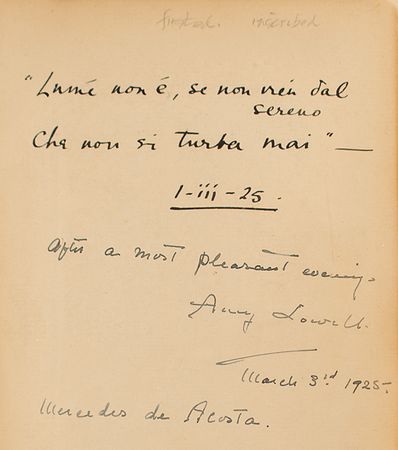 first ed. inscribed
"Lumé non é, se non vien dal
sereno
Che non si turba mai" —
1-iii-25.
After a most pleasant evening.
Amy Lowell.
March 3rd 1925.
Mercedes de Acosta.